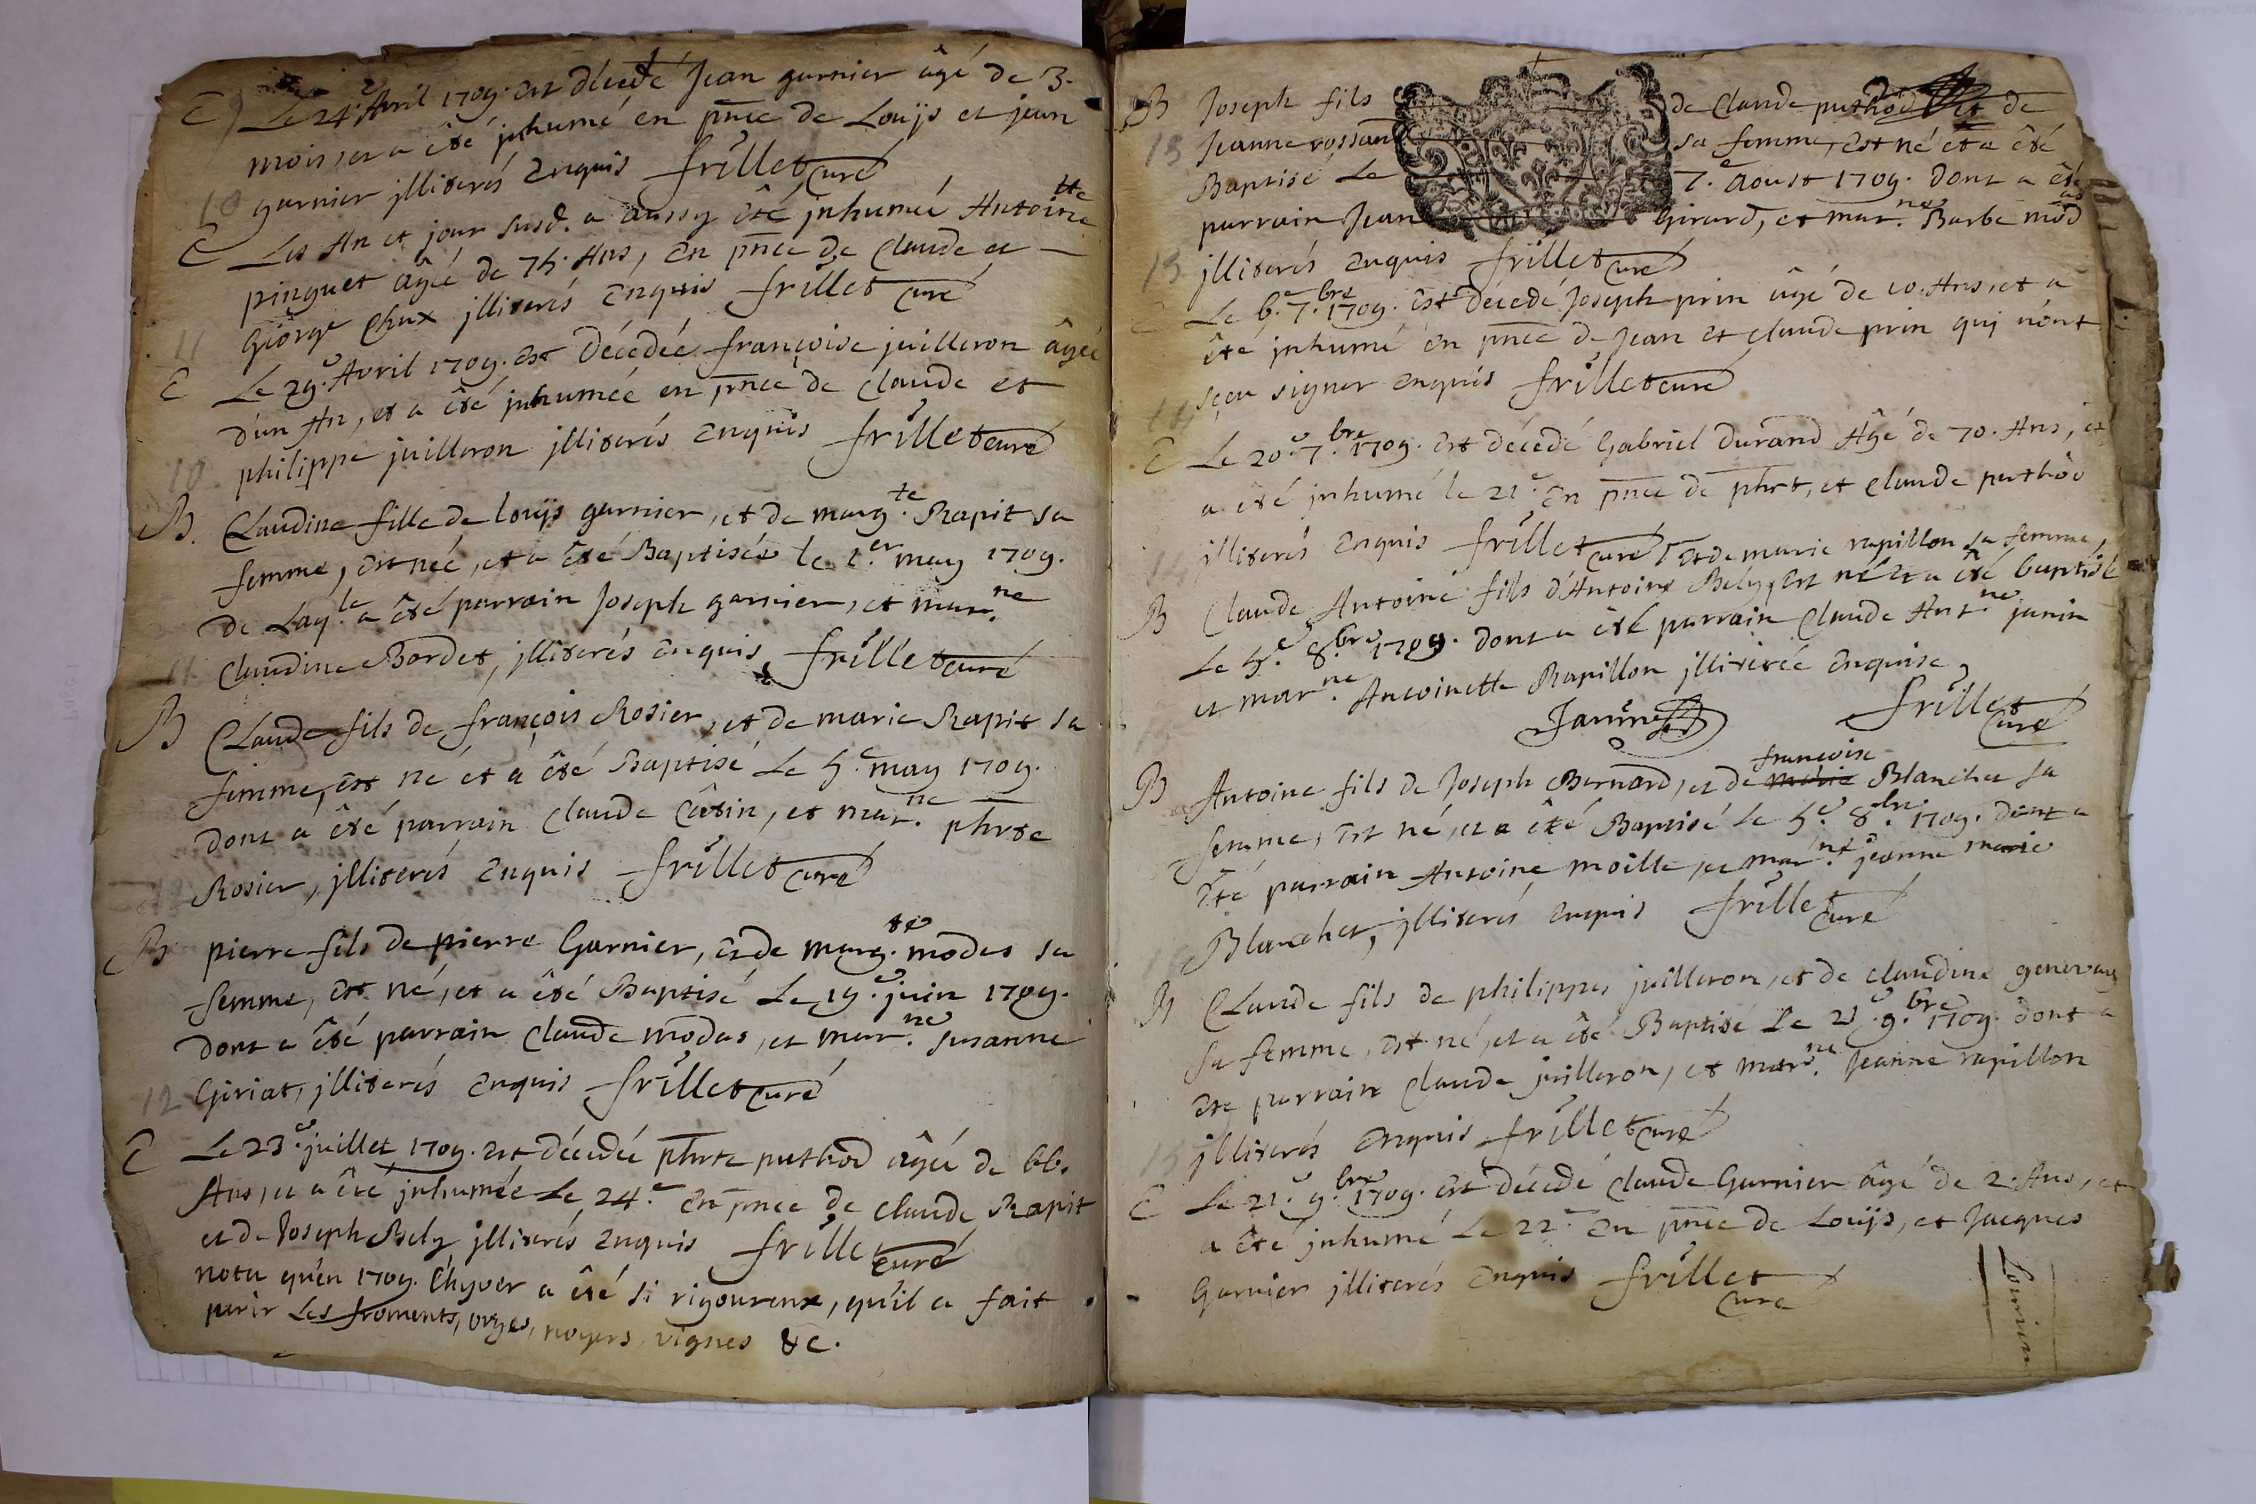 C Le 24.e Avril 1709. est décedé Jean garnier âgé de 3.
mois, et a été jnhumé en pnce de Louÿs et jean
garnier jlliterés enquis frillet curé
10
C Les An et jour susd. a aussy été jnhumée Antoinette
pinguet âgée de 75. Ans, en pnce de Claude et
George Chux jlliterés enquis frillet curé
11
C Le 29.e Avril 1709. est décedée françoise juilleron âgée
d'un An, et a été jnhumée en pnce de Claude et
philippe juilleron jlliterés enquis frillet curé
10
B. Claudine fille de louÿs garnier, et de marg.te Rapit sa
femme, est née, et a été Baptisée le 1.er may 1709.
de Laq.le a été parrain Joseph garnier, et mar.ne
Claudine Bordet, jlliterés enquis frillet curé
11
B Claude fils de françois Rosier, et de marie Rapit sa
femme, est né et a été Baptisé Le 5.e may 1709.
dont a été parrain Claude Cötin, et mar.ne phrte
Rosier, jlliterés enquis frillet curé
12
B pierre fils de pierre Garnier, et de marg.te modas sa
femme, est né, et a été Baptisé Le 19.e juin 1709.
dont a été parrain Claude modas, et mar.ne susanne
Giriat, jlliterés enquis frillet curé
12
C Le 23.e juillet 1709. est décedée phrte puthod âgée de 66.
Ans, et a été jnhumée Le 24.e en pnce de Claude Rapit
et de Joseph Bely jlliterés enquis frillet curé
nota qu'en 1709. l'hyver a été si rigoureux, qu'il a fait
perir Les froments, orges, noyers, vignes &c.
B Joseph fils de Claude puthod et de
13 Jeanne rossand sa femme, est né et a été
Baptisé Le 7.e Aoust 1709. dont a été
parrain Jean Girard, et mar.ne Barbe mod
jlliterés enquis frillet curé
13
C Le 6.e 7.bre 1709. est décedé Joseph prin âgé de 10. Ans, et a
été jnhumé en pnce de Jean et Claude prin qui n'ont
sçeu signer enquis frillet curé
14
C Le 20.e 7.bre 1709. est décedé Gabriel durand Agé de 70. Ans, et
a été jnhumé le 21.e en pnce de phrt, et Claude puthod
jlliterés enquis frillet curé et de marie rapillon sa femme,
B Claude Antoine fils d'Antoine Bely, est né et a été baptisé
Le 5.e 8.bre 1709. dont a été parrain Claude Ant.ne janin
et mar.ne Antoinette Rapillon jlliterée enquise,
Janin frillet curé
françoise
B Antoine fils de Joseph Bernard, et de marie Blanchet sa
femme, est né, et a été Baptisé Le 5.e 8.bre 1709. dont a
été parrain Antoine moille, et mar.ne jeanne marie
Blanchet, jlliterés enquis frillet curé
B Claude fils de philippes juilleron, et de claudine genevay
sa femme, est né, et a été Baptisé Le 21.e 9.bre 1709. dont a
été parrain Claude juilleron, et mar.ne Jeanne rapillon
jlliterés enquis frillet curé
15
C Le 21.e 9.bre 1709. est décedé Claude Garnier âgé de 2. Ans, et
a été jnhumé Le 22.e en pnce de Louÿs, et Jacques
Garnier jlliterés enquis frillet curé